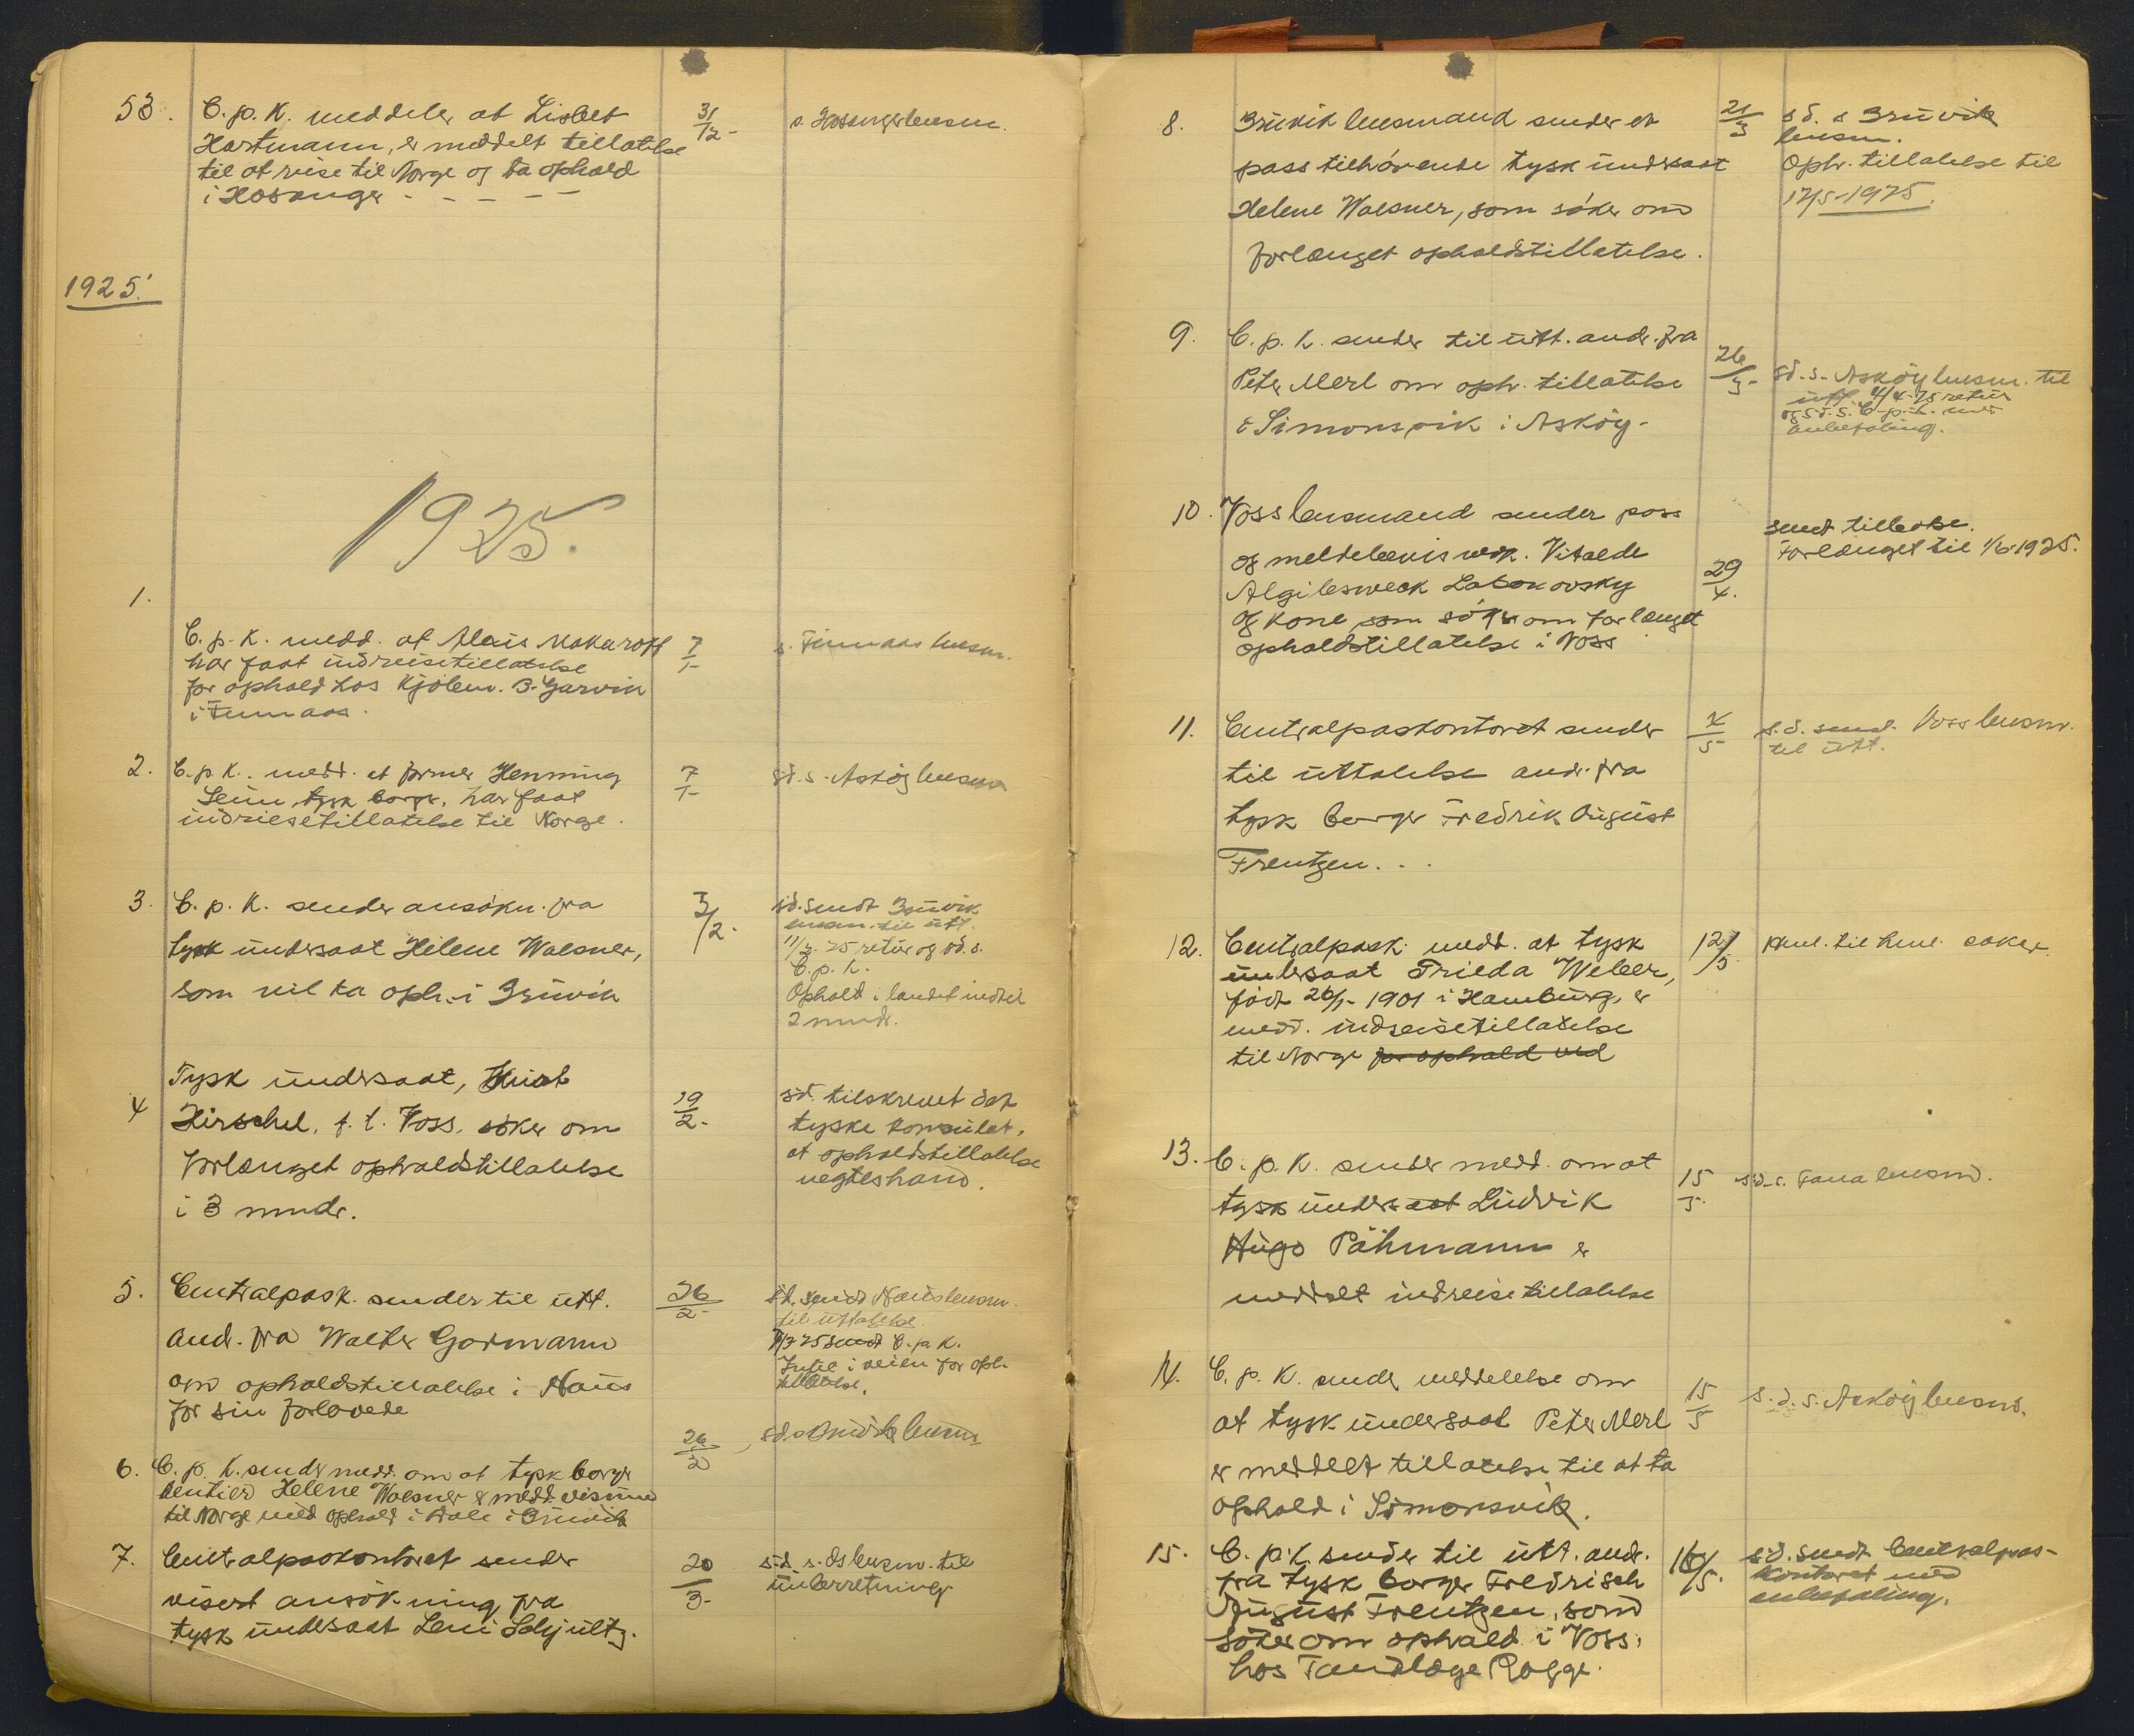 53. C. p. K. meddeler at Lisbet
Hartmann, er meddelt tillatelse
til at reise til Norge og ta ophold
i Hosanger - - - - -
31/12-
s. Hosanger lensm.
1925.
1925.
1.
C. p. K. medd. at Alexis Makaroff
har faat indreisetillatelse
for ophold hos Kjølem. B. Garvik
i Finnaas.
7/1-
s. Finnaas lensm.
2. C. p. K. medd. at farmer Henning
tysk borger, har faat
indreisetillatelse til Norge.
7/1-
sd. s. Askøy lensm
3. C. p. K. sender ansøkn. fra
tysk undersaat Helene Walsner,
som vil ta oph. i Bruvik
3/2-
sd. sendt Bruvik
lensm. til utt.
11/2-25 retur og sd. s.
C. p. K.
Ophold i landet indtil
2 mndr.
Tysk undersaat, Kurt
4 Hirschel, f. t. Voss, søker om
forlænget opholdstillatelse
i 3 mndr.
19/2-
sd. tilskrevet det
tyske konsulat,
at opholdstillatelse
negtes ham.
5. Centralpask. sender til utt.
and. fra Walter Gormann
om opholdstillatelse i Haus
for sin forlovede
26/2-
sd. sendt Haus lensm.
til uttalelse.
7/3-25 sendt C. p. K.
Intet i veien for oph.
tillatelse.
6. C. p. K. sender medd. om at tysk borger
Helene Walsner er medd. visum
til Norge med ophold i Dale i Bruvik
26/2
sd. s. Bruvik lensm
7. Centralpaskontoret sender
visert ansøkning fra
tysk undersaat Leni Schjultz.
20/3-
sd. s. Os lensm. til
underretning.
8. Bruvik lensmand sender et
pass tilhørende tysk undersaat
Helene Walsner, som søker om
forlænget opholdstillatelse.
21/3
sd. s Bruvik
lensm.
Oph. tillatelse til
12/5-1925.
9. C. p. K. sender til utt. and. fra
Peter Merl om oph. tillatelse
i Simonsvik i Askøy-
26/3-
sd. s. Askøy lensm. til
utt. 4/4-25 retur
og sd. s. C. p. K. med
anbefaling.
10. Voss lensmand sender pass
og meldebevis vedr. Vitalde
Algilesweck Labonovsky
og kone, som søker om forlænget
opholdstillatelse i Voss
29/4.
sendt tilbake.
Forlænget til 1/6-1925.
11. Centralpaskontoret sender
til uttalelse and. fra
tysk borger Fredrik August
Frentzen. . .
4/5-
s. d. send. Voss lensm.
til utt.
12. Centralpask. medd. at tysk
undersaat Frieda Weber,
født 26/1- 1901 i Hamburg, er
medd. indreisetillatelse
til Norge for ophold ved
12/5.
Henl. til henl. saker.
13. C. p. K. sender medd. om at
tysk undersaat Ludvik
Hugo Pöhmann er
meddelt indreisetillatelse
15/5.
sd. s. Fana lensm.
14. C. p. K. sender meddelelse om
at tysk undersaat Peter Merl
er meddelt tillatelse til at ta
ophold i Simonsvik.
15/5
s. d. s. Askøy lensm.
15. C. p. K. sender til utt. and.
fra tysk borger Fredrisch
August Frentzen, som
søker om ophold i Voss,
hos Tandlæge Rogge.
16/5.
sd. sendt Centralpas-
kontoret med
anbefaling.